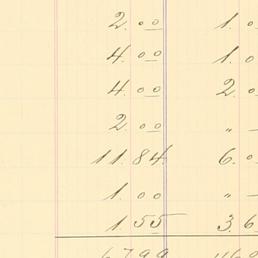 2.00 1.0
4.00 1.0
4.00 2.0
2.00 " —
11.84 6.0
1.00 " —
1.55 3.6
67.99